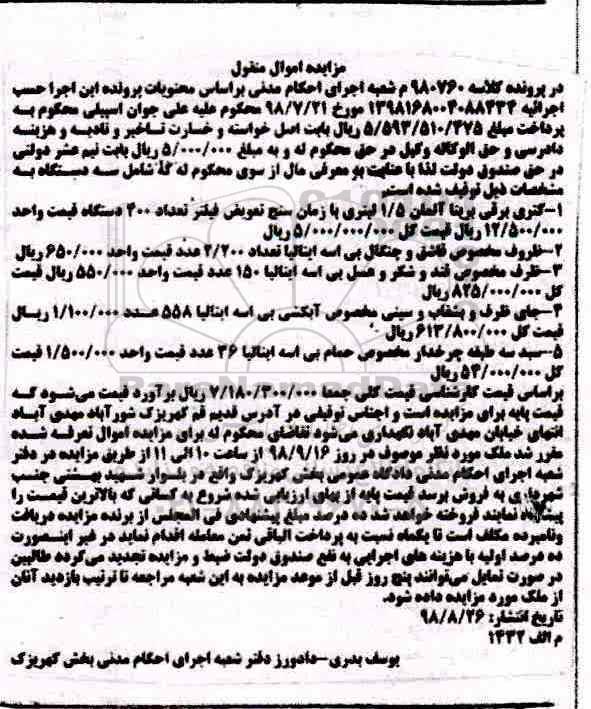 مزایده اموال منقول
در پرونده کلاسه ۹۸۰۷۶۰ م شعبه اجرای احکام مدنی براساس محتویات پرونده این اجرا حسب
اجرائیه ۱۳۹۸۱۶۸۰۰۴۰۸۸۴۳۴ مورخ ۹۸/۷/۲۱ محکوم علیه علی جوان اسبیلی محکوم به
پرداخت مبلغ ۵/۵۹۳/۵۱۰/۳۷۵ ریال بابت اصل خواسته و خسارت تاخیر و تادیه و هزینه
دادرسی و حق الوکاله وکیل در حق محکوم له و به مبلغ ۵/۰۰۰/۰۰۰ ریال بابت نیم عشر دولتی
در حق صندوق دولت لذا با عنایت به معرفی مال از سوی محکوم له که شامل سه دستگاه به
مشخصات ذیل توقیف شده است.
۱-کتری برقی بریتا آلمان ۱/۵ لیتری با زمان سنج تعویض فیلتر تعداد ۴۰۰ دستگاه قیمت واحد
۱۲/۵۰۰/۰۰۰ ریال قیمت کل ۵/۰۰۰/۰۰۰/۰۰۰ ریال
۲-ظروف مخصوص قاشق و چنگال بی اسه ایتالیا تعداد ۲/۲۰۰ عدد قیمت واحد ۶۵۰/۰۰۰ ریال
۳-ظرف مخصوص قند و شکر و عسل بی اسه ایتالیا ۱۵۰ عدد قیمت واحد ۵۵۰/۰۰۰ ریال قیمت
کل ۸۲۵/۰۰۰/۰۰۰ ریال
۴-جای ظرف و بشقاب و سینی مخصوص آبکشی بی اسه ایتالیا ۵۵۸ عدد ۱/۱۰۰/۰۰۰ ریال
قیمت کل ۶۱۳/۸۰۰/۰۰۰ ریال
۵-سبد سه طبقه چرخدار مخصوص حمام بی اسه ایتالیا ۳۶ عدد قیمت واحد ۱/۵۰۰/۰۰۰ قیمت
کل ۵۴/۰۰۰/۰۰۰ ریال
براساس قیمت کارشناسی قیمت کلی جمعا ۷/۱۸۰/۳۰۰/۰۰۰ ریال برآورد قیمت می‌شود که
قیمت پایه برای مزایده است و اجناس توقیفی در آدرس قدیم قم کهریزک شورآباد مهدی آباد
انتهای خیابان مهدی آباد نگهداری می‌شود تقاضای محکوم له برای مزایده اموال تعرفه شده
مقرر شد ملک مورد نظر موصوف در روز ۹۸/۹/۱۶ از ساعت ۱۰ الی ۱۱ از طریق مزایده در دفتر
شعبه اجرای احکام مدنی دادگاه عمومی بخش کهریزک واقع در بلوار شهید بهشتی جنب
شهرداری به فروش برسد قیمت پایه از بهای ارزیابی شده شروع به کسانی که بالاترین قیمت را
پیشنهاد نمایند فروخته خواهد شد ده درصد مبلغ پیشنهادی فی المجلس از برنده مزایده دریافت
ونامبرده مکلف است تا یکماه نسبت به پرداخت الباقی ثمن معامله اقدام نماید در غیر اینصورت
ده درصد اولیه با هزینه های اجرایی به نفع صندوق دولت ضبط و مزایده تجدید می‌گردد طالبین
در صورت تمایل می‌توانند پنج روز قبل از موعد مزایده به این شعبه مراجعه تا ترتیب بازدید آنان
از ملک مورد مزایده داده شود.
تاریخ انتشار: ۹۸/۸/۲۶
م الف ۱۴۳۲
یوسف بدری-دادورز دفتر شعبه اجرای احکام مدنی بخش کهریزک